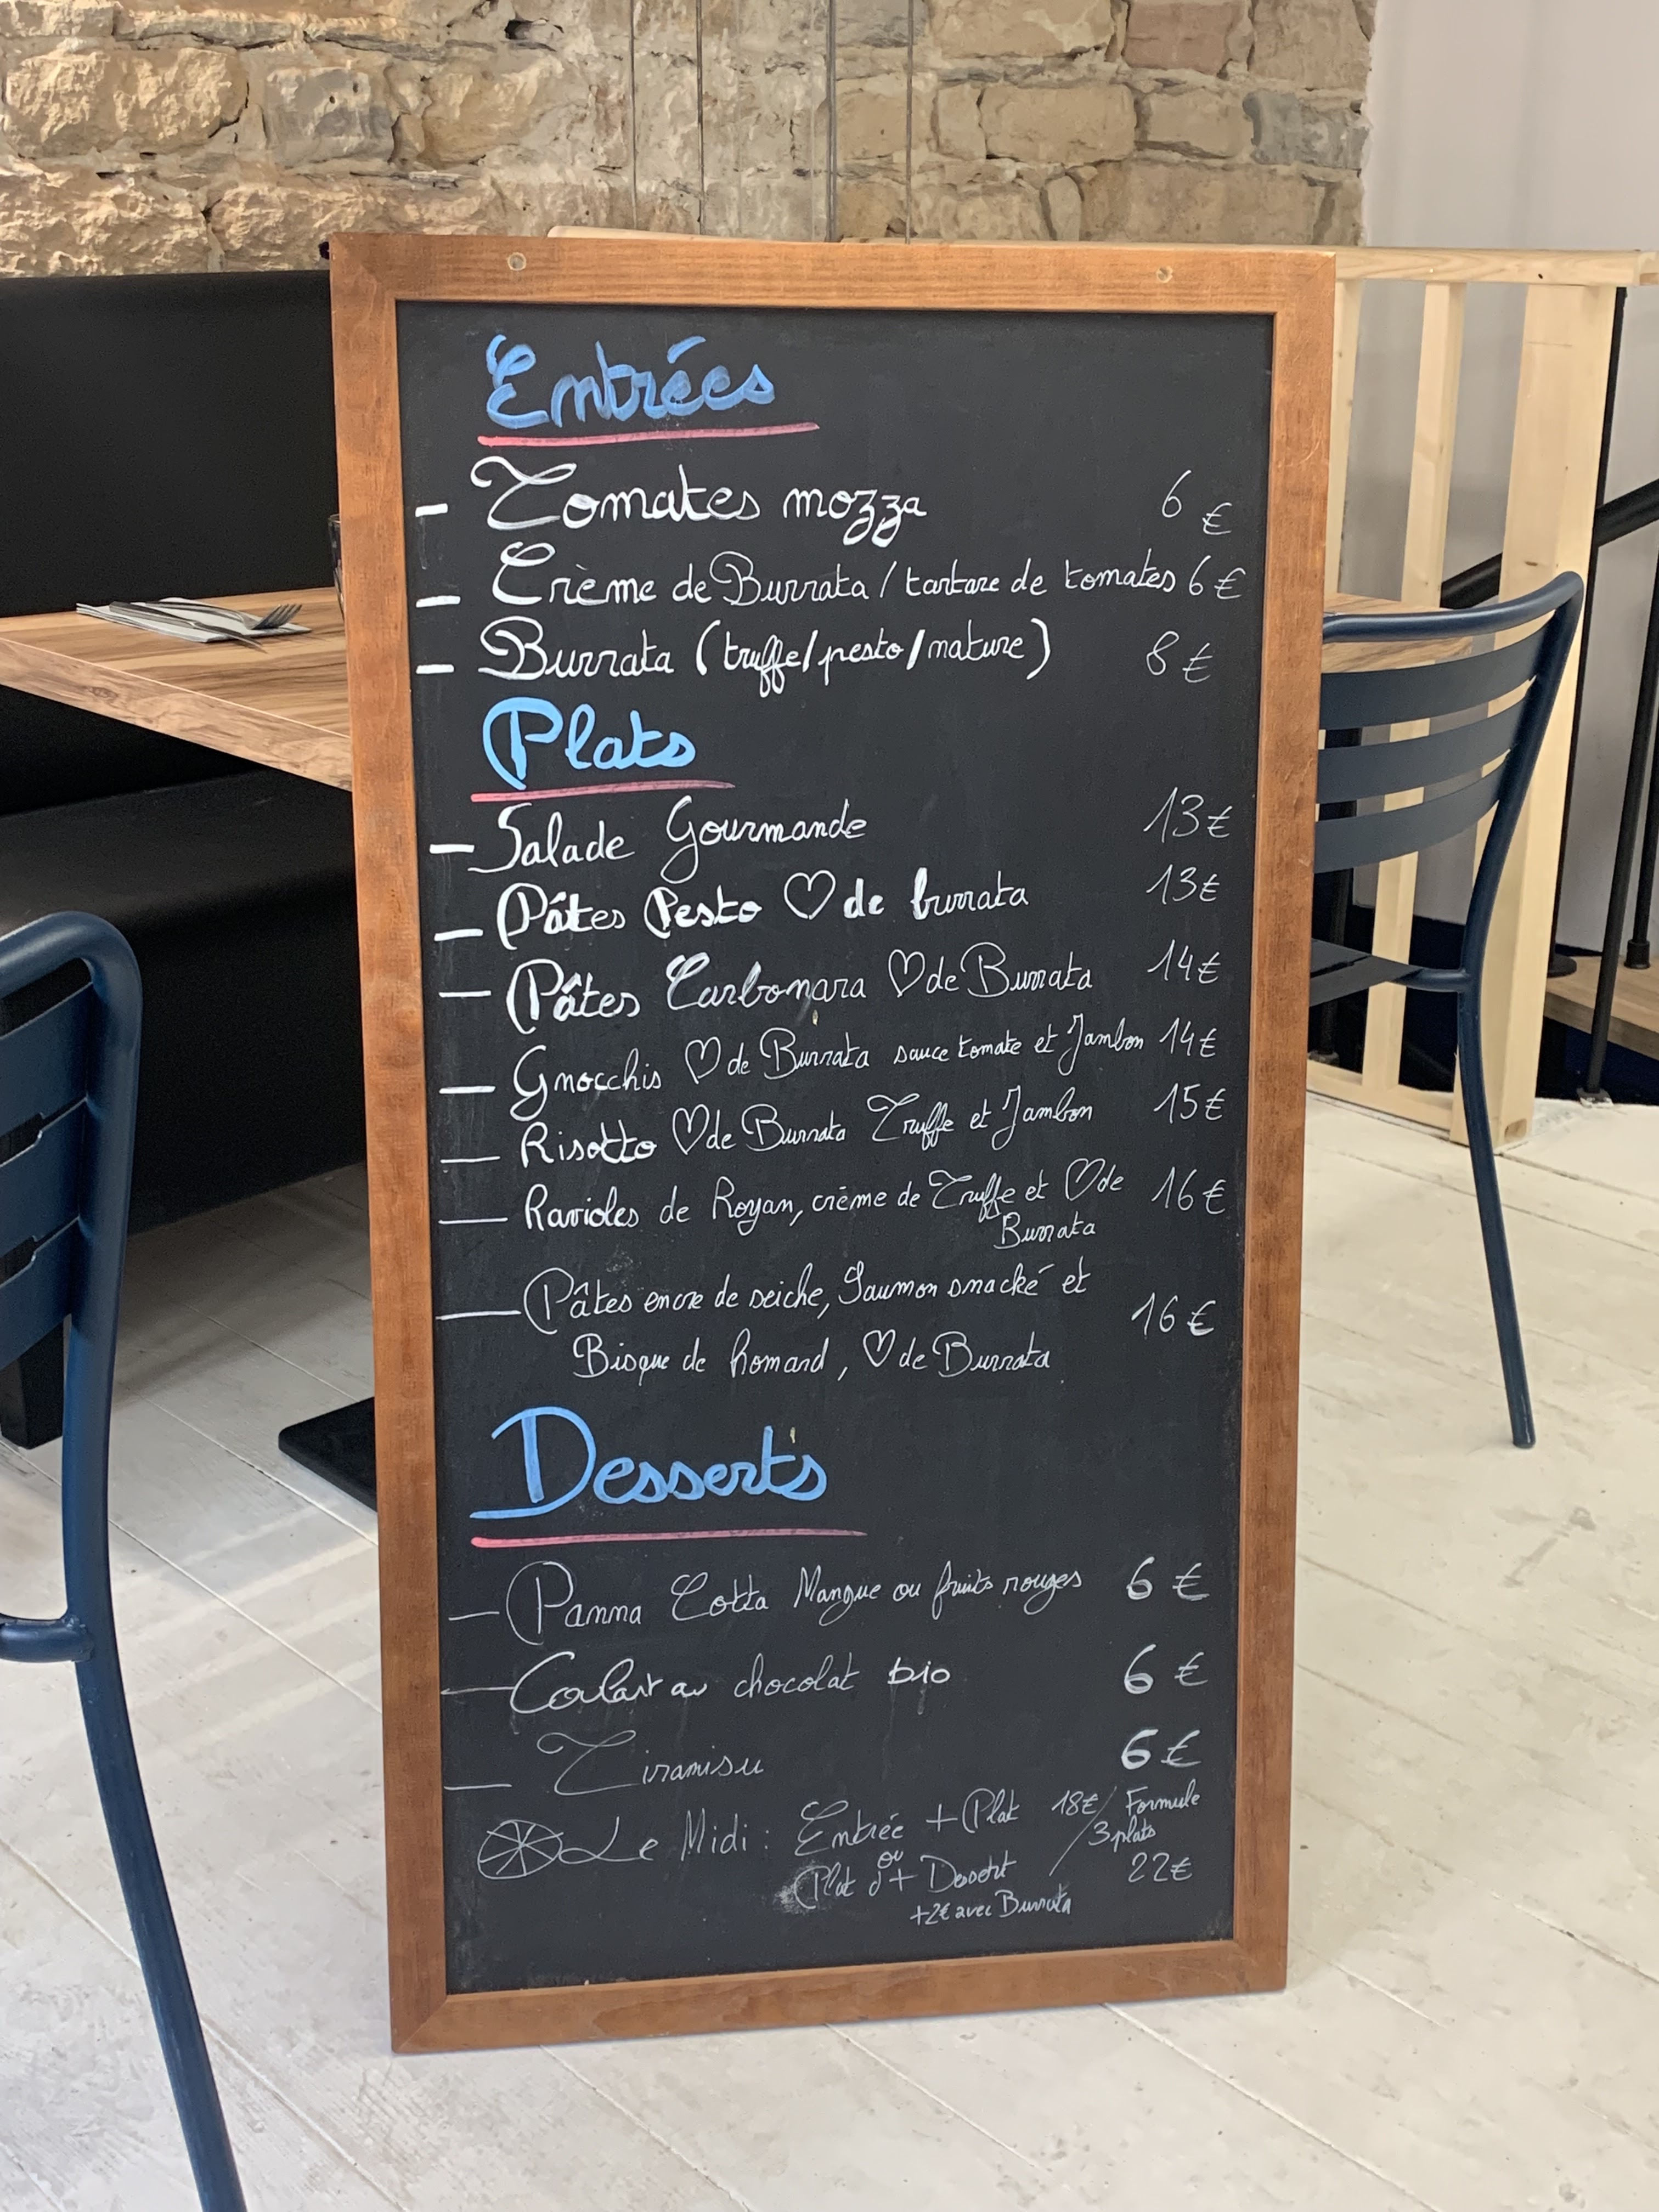 Entrées
- Tomates mozza 6 €
- Crème de Burrata / tartare de tomates 6 €
- Burrata (truffe/pesto/nature) 8 €
Plats
- Salade Gourmande 13 €
- Pâtes Pesto ♡ de burrata 13 €
- Pâtes Carbonara ♡ de Burrata 14 €
- Gnocchis ♡ de Burrata sauce tomate et Jambon 14 €
- Risotto ♡ de Burrata Truffe et Jambon 15 €
- Ravioles de Royan, crème de Truffe et ♡ de 16 €
Burrata
- Pâtes encre de seiche, Saumon snacké et
16 €
Bisque de homard, ♡ de Burrata
Desserts
- Panna Cotta Mangue ou fruits rouges 6 €
- Coulant au chocolat bio 6 €
- Tiramisu 6 €
Le Midi : Entrée + Plat 18€ / Formule
ou 3 plats
Plat + Dessert 22€
+2€ avec Burrata